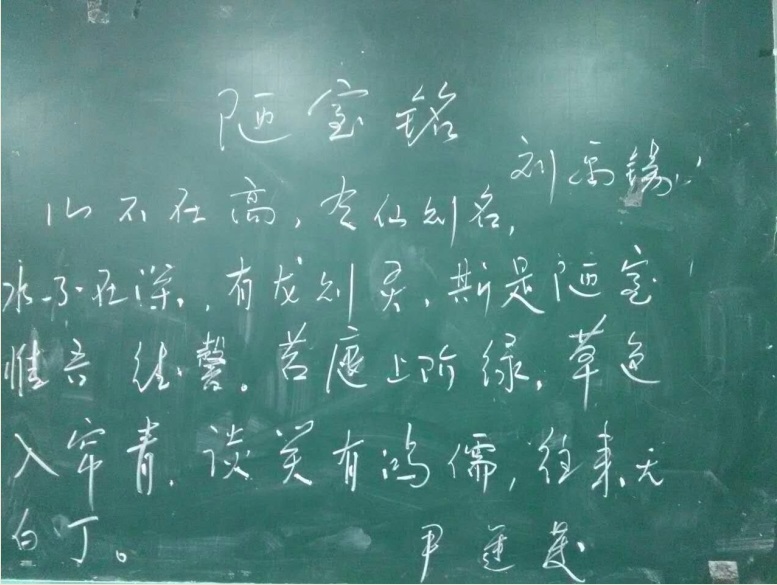 陋室铭
刘禹锡
山不在高，有仙则名，
水不在深，有龙则灵，斯是陋室
惟吾德馨。苔痕上阶绿，草色
入帘青，谈笑有鸿儒，往来无
白丁。 尹